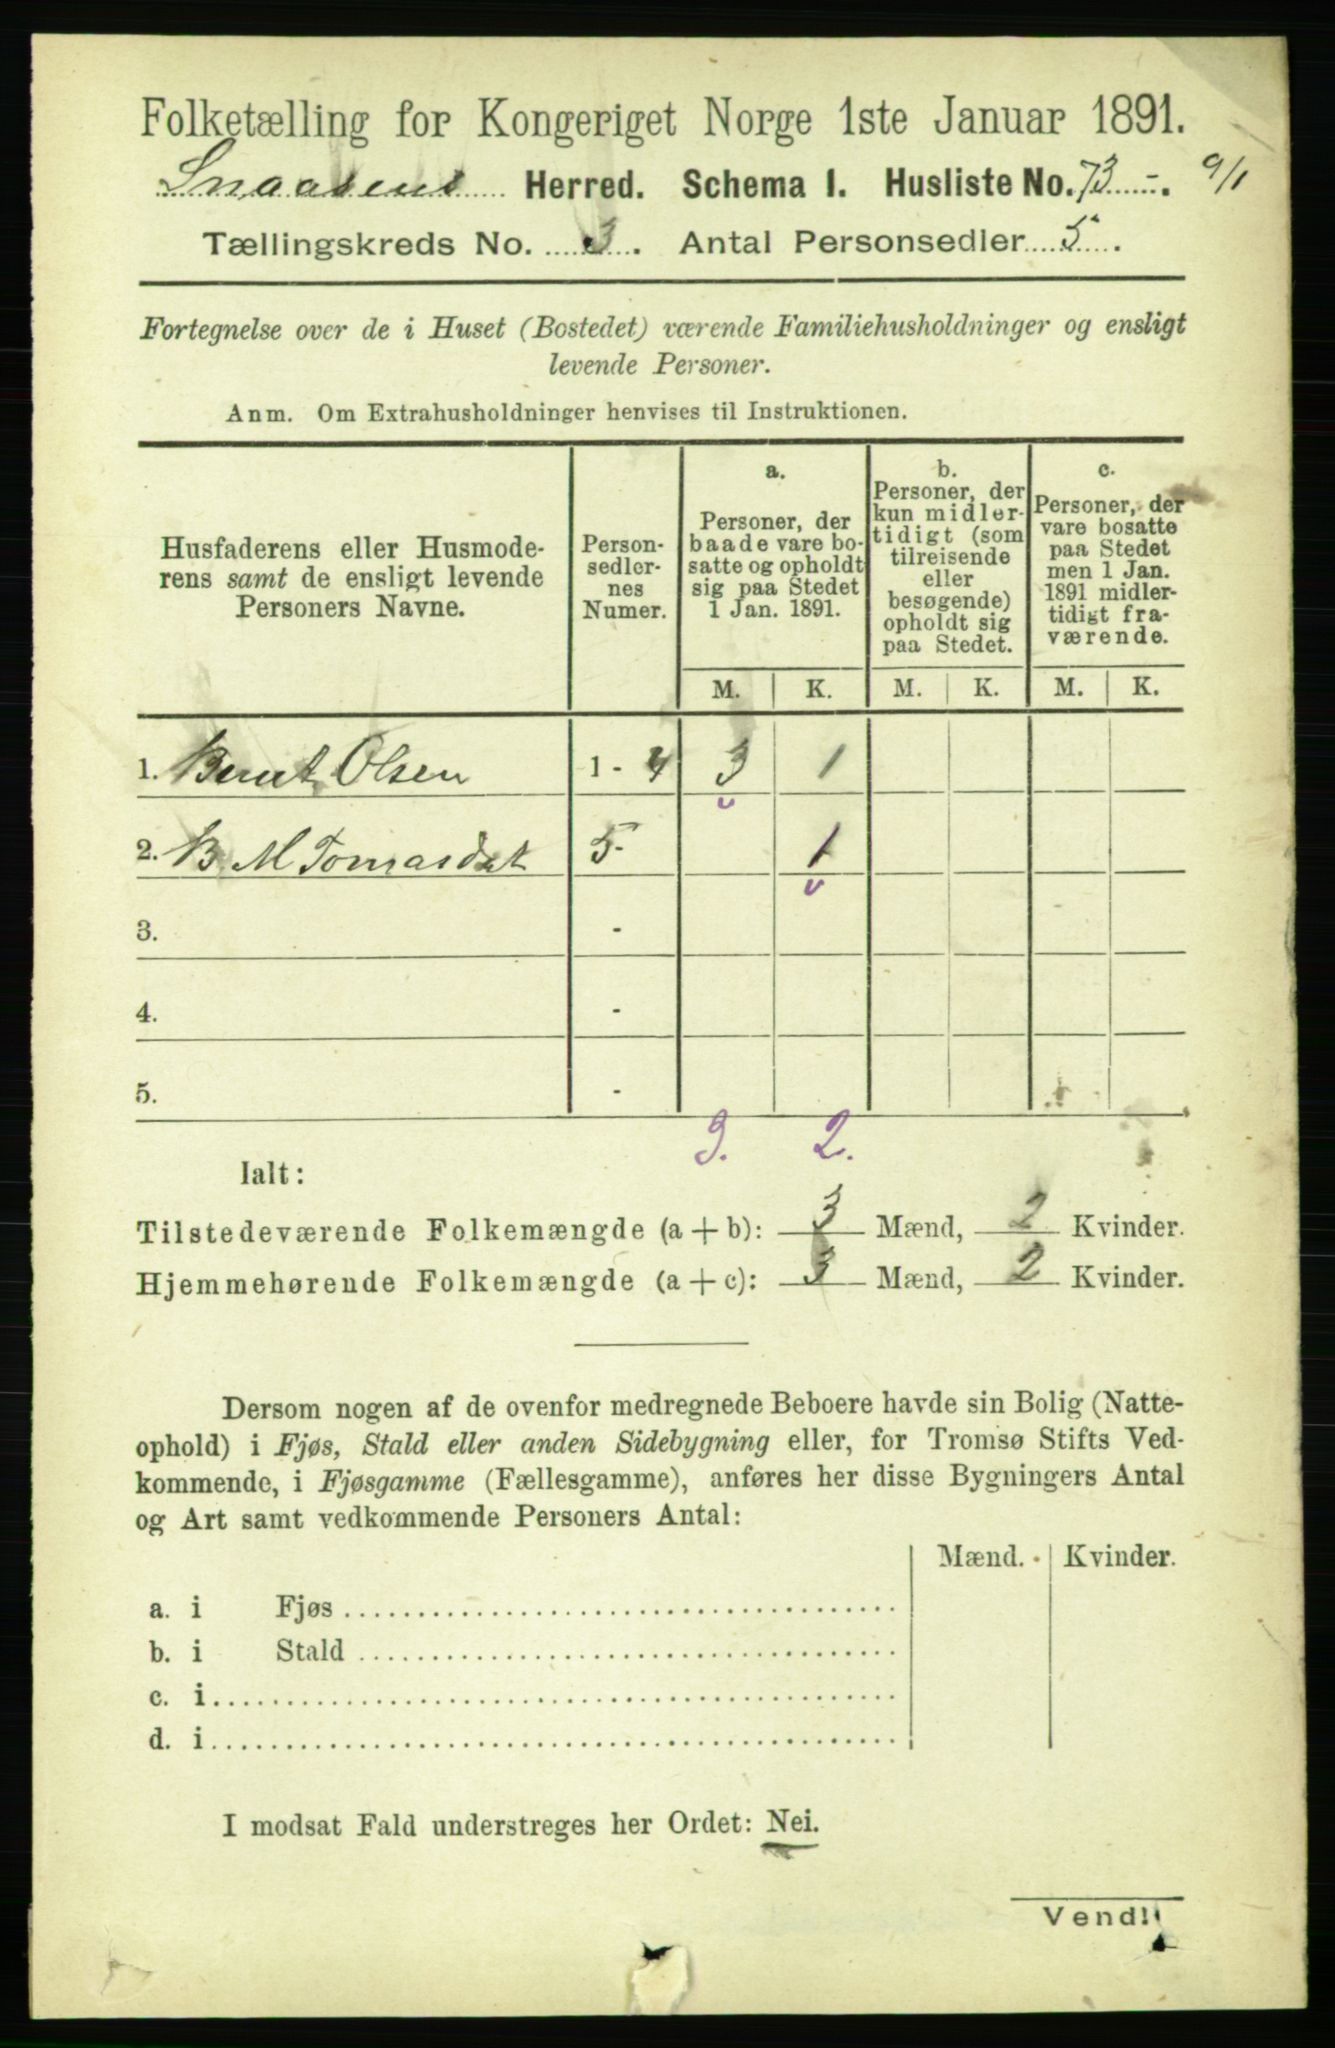 Folketælling for Kongeriget Norge 1ste Januar 1891.
Snaasens Herred. Schema I. Husliste No. 73 9/1
Tællingskreds No. 3. Antal Personsedler 5.
Fortegnelse over de i Huset (Bostedet) værende Familiehusholdninger og ensligt
levende Personer.
Anm. Om Extrahusholdninger henvises til Instruktionen.
Husfaderens eller Husmode-
rens samt de ensligt levende
Personers Navne.
Person-
sedler-
nes
Numer.
a.
Personer, der
baade vare bo-
satte og opholdt
sig paa Stedet
1 Jan. 1891.
b.
Personer, der
kun midler-
tidigt (som
tilreisende
eller
besøgende)
opholdt sig
paa Stedet.
c.
Personer, der
vare bosatte
paa Stedet
men 1 Jan.
1891 midler-
tidigt fra-
værende.
M. K. M. K. M. K.
1. Bernt Olsen 1 - 4 3 1
2. B. M Tomasdat 5- 1
3. -
4. -
5. -
3. 2.
Ialt:
Tilstedeværende Folkemængde (a + b): 3 Mænd, 2 Kvinder.
Hjemmehørende Folkemængde (a + c): 3 Mænd, 2 Kvinder.
Dersom nogen af de ovenfor medregnede Beboere havde sin Bolig (Natte-
ophold) i Fjøs, Stald eller anden Sidebygning eller, for Tromsø Stifts Ved-
kommende, i Fjøsgamme (Fællesgamme), anføres her disse Bygningers Antal
og Art samt vedkommende Personers Antal:
Mænd. Kvinder.
a. i Fjøs
b. i Stald
c. i
d. i
I modsat Fald understreges her Ordet: Nei.
Vend!